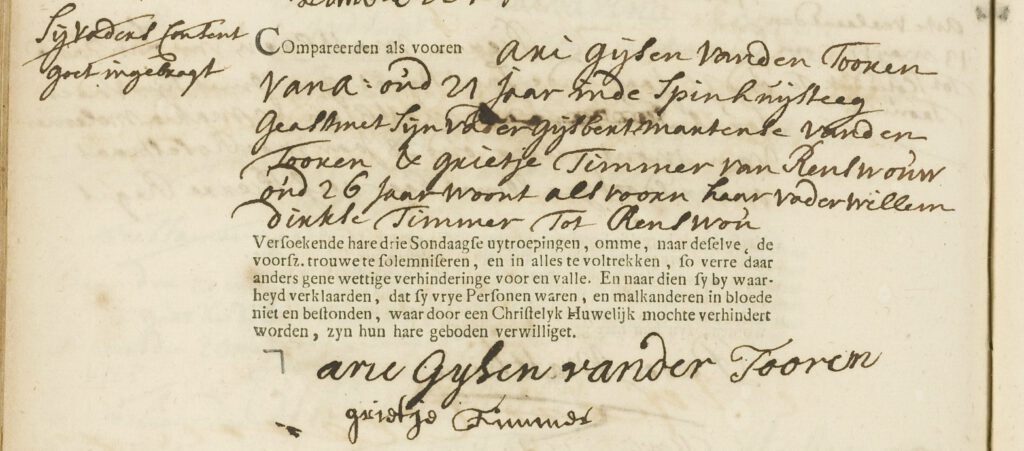 Syvaders Consent
goet ingebragt
Compareerden als vooren Ari Gijsen vanden Tooren
van A: oud 21 Jaar inde Spinhuijsteeg
geast met Syn vader gysbert mantense vanden
Tooren & grietje Timmer van Renswouw
oud 26 Jaar woont als voorn haar vader willem
dirkse Timmer Tot Renswou
Versoekende hare drie Sondaagse uytroepingen, omme, naar deselve, de
voorsz. trouwe te solemniseren, en in alles te voltrekken, so verre daar
anders gene wettige verhinderinge voor en valle. En naar dien sy by waar-
heyd verklaarden, dat sy vrye Personen waren, en malkanderen in bloede
niet en bestonden, waar door een Christelyk Huwelijk mochte verhindert
worden, zyn hun hare geboden verwilliget.
arie Gysen vander Tooren
grietje Timmer